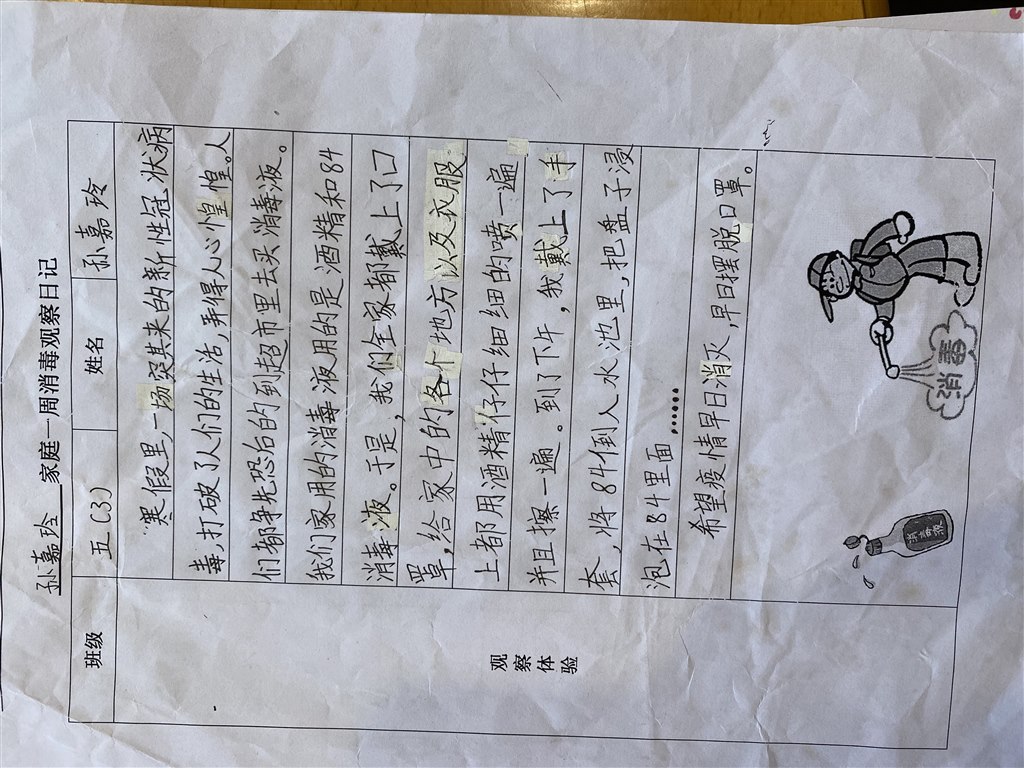 孙嘉玲 家庭一周消毒观察日记
班级 五(3) 姓名 孙嘉玲
观察体验
寒假里,一场突其来的新性冠状病
毒,打破了人们的生活,弄得人心惶惶。人
们都争先恐后的到超市里去买消毒液。
我们家用的消毒液用的是酒精和84
消毒液。于是,我们全家都戴上了口
罩,给家中的各个地方以及衣服
上都用酒精仔仔细细的喷一遍
并且擦一遍。到了下午,我戴上了手
套,将84倒入水池里,把盘子浸
泡在84里面……
希望疫情早日消灭,早日摆脱口罩。
消毒液
消毒